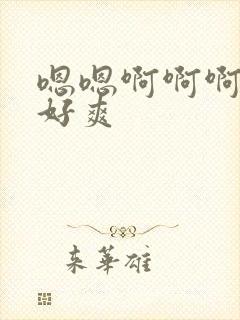 嗯嗯啊啊啊
好爽
来华雄